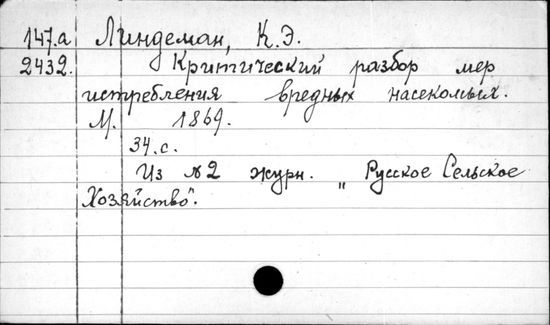 147.а Линдеман, К.Э.
2432. Критический разбор мер
истребления вредных насекомых.
М. 1869.
34.с.
Из №2 журн. „Русское Сельское
Хозяйство".